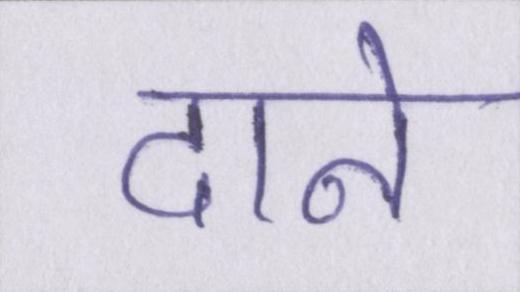 दाने